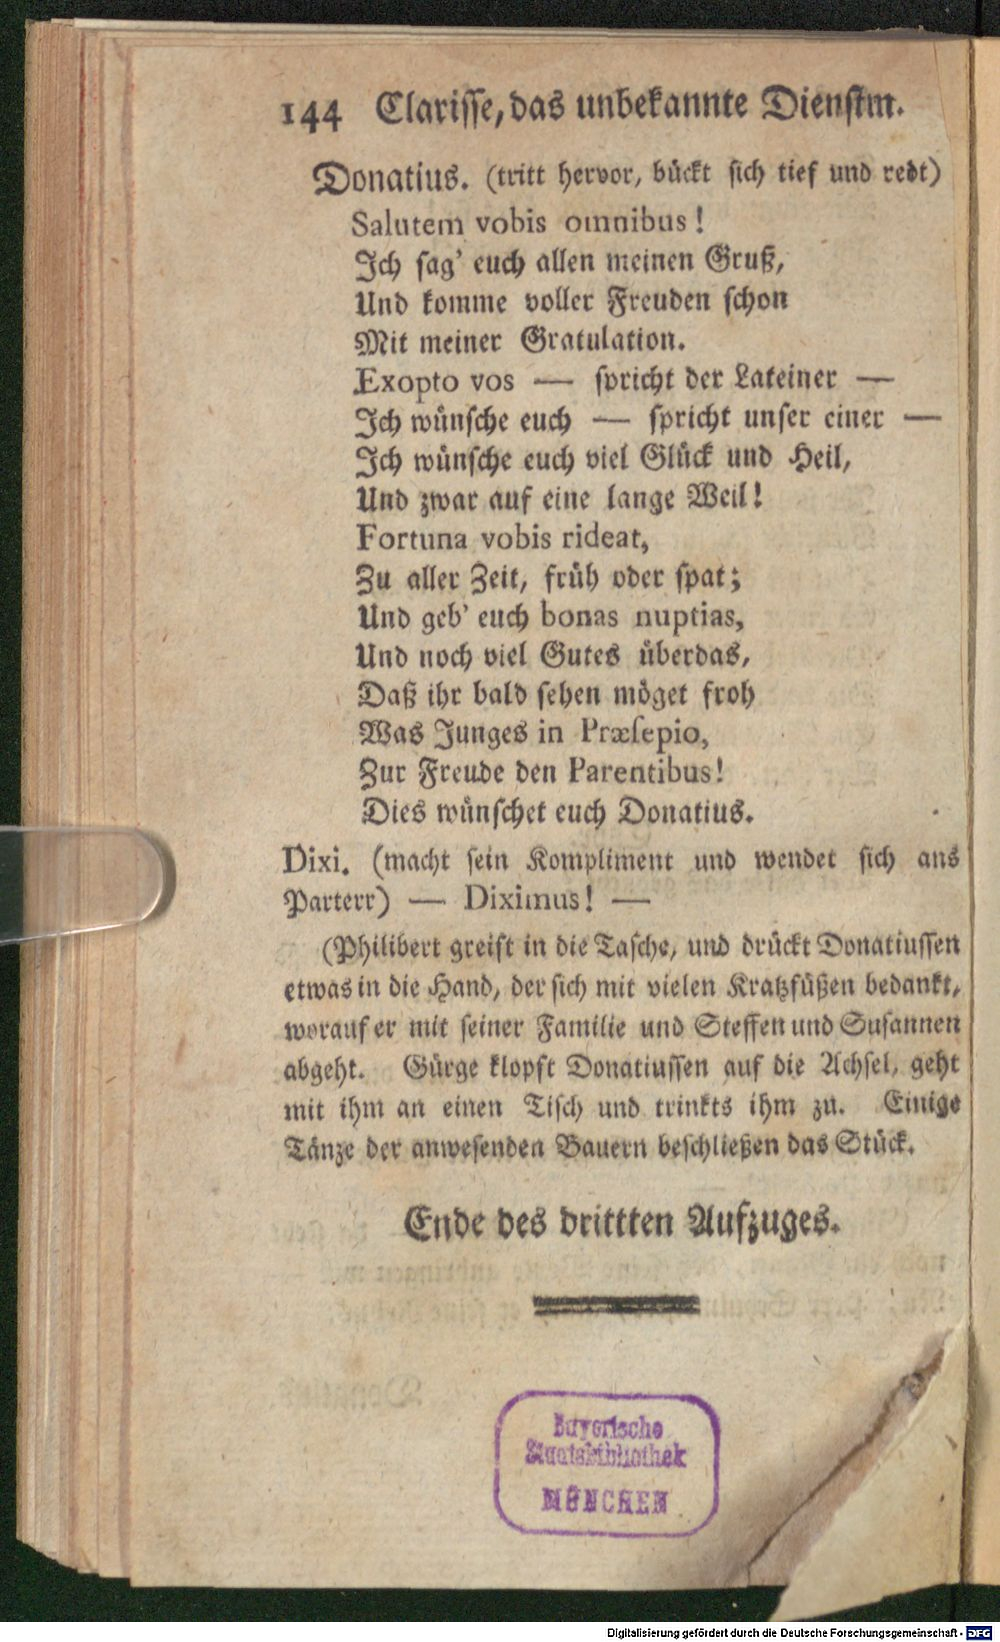 144 Clarisse, das unbekannte Dienstm.
Donatius. (tritt hervor, bückt sich tief und redt)
Salutem vobis omnibus!
Ich sag' euch allen meinen Gruß,
Und komme voller Freuden schon
Mit meiner Gratulation.
Exopto vos — spricht der Lateiner —
Ich wünsche euch — spricht unser einer —
Ich wünsche euch viel Glück und Heil,
Und zwar auf eine lange Weil!
Fortuna vobis rideat,
Zu aller Zeit, früh oder spat;
Und geb' euch bonas nuptias,
Und noch viel Gutes überdas,
Daß ihr bald sehen möget froh
Was Junges in Præsepio,
Zur Freude den Parentibus!
Dies wünschet euch Donatius.
Dixi. (macht sein Kompliment und wendet sich ans
Parterr) — Diximus! —
(Philibert greift in die Tasche, und drückt Donatiussen
etwas in die Hand, der sich mit vielen Kratzfüßen bedankt,
worauf er mit seiner Familie und Steffen und Susannen
abgeht. Gürge klopft Donatiussen auf die Achsel, geht
mit ihm an einen Tisch und trinkts ihm zu. Einige
Tänze der anwesenden Bauern beschließen das Stück.
Ende des drittten Aufzuges.
Bayerische
Staatsbibliothek
MÜNCHEN
Digitalisierung gefördert durch die Deutsche Forschungsgemeinschaft - DFG